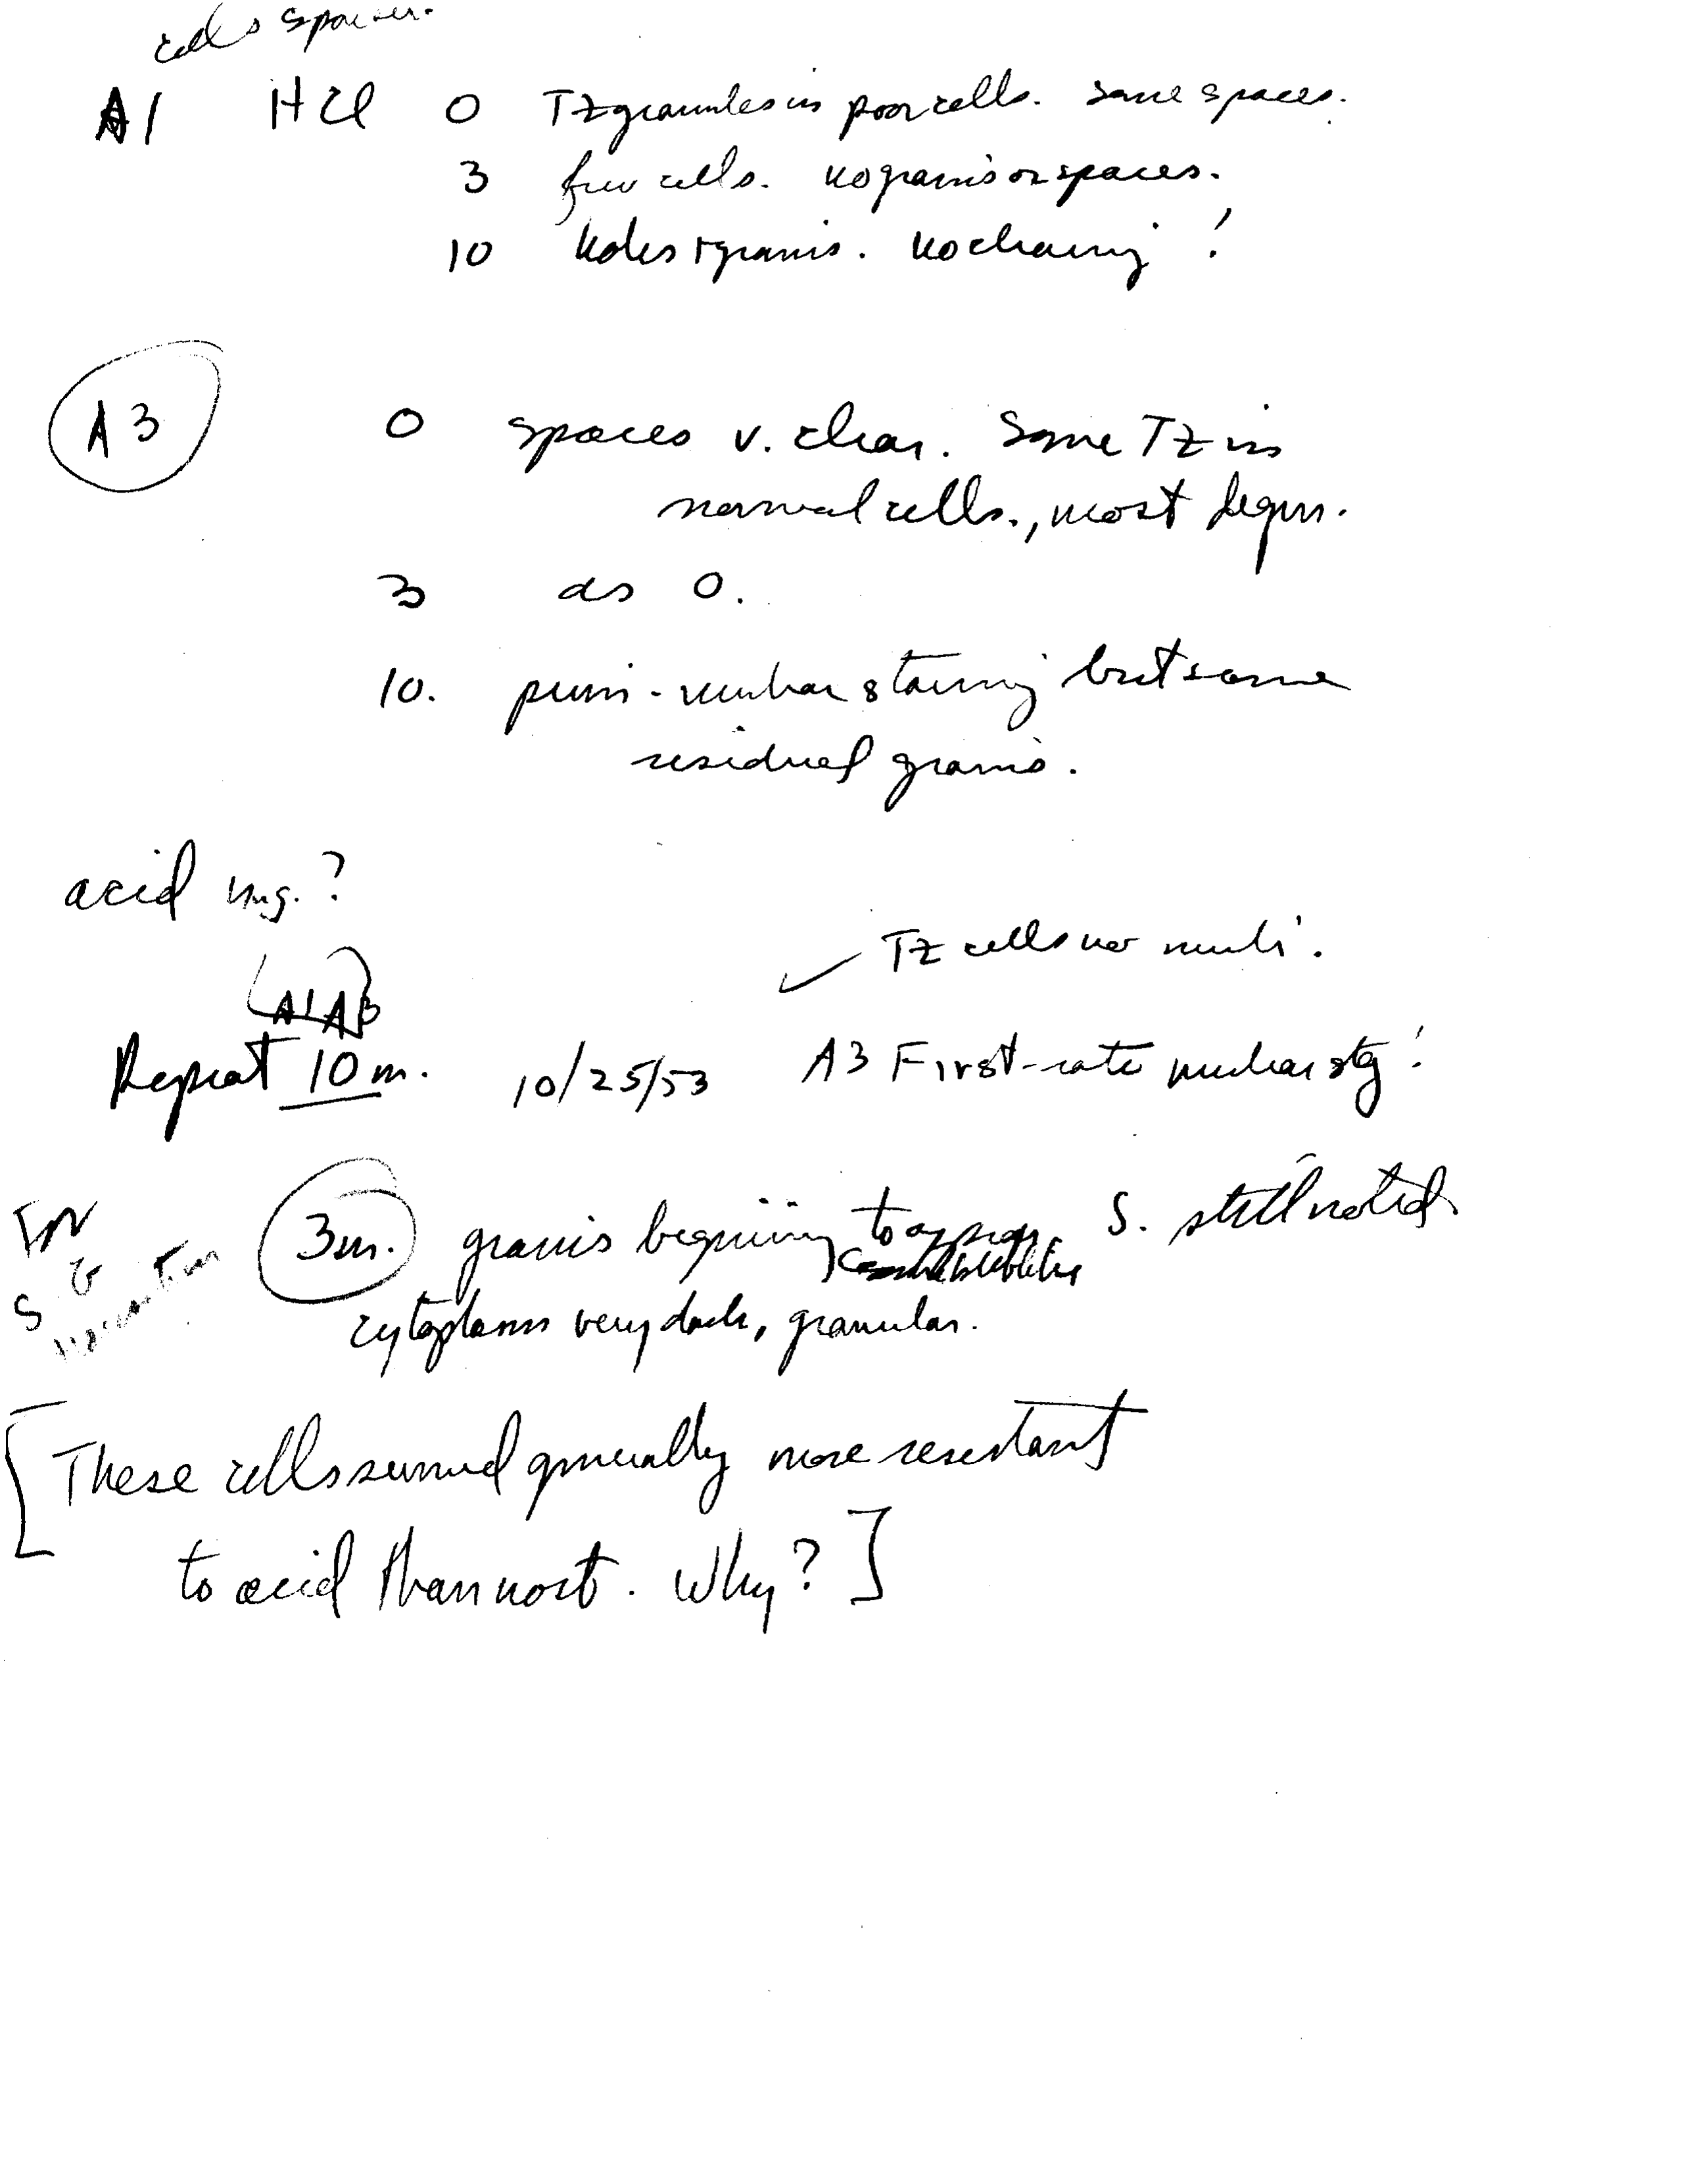 cells sparser.
A1 HCl 0 Tz granules in poor cells. Some spaces.
3 few cells. No grains or spaces.
10 Holes + grains. No clearing!
A3 0 spaces v. clear. Some Tz in
normal cells., most degen.
3 as 0.
10. nuclear staining but some
residual grains.
acid ?
Tz cells not nucl.
(A1 A3)
Repeat 10 m. 10/25/53 A3 First-rate nuclear stg!
3m. grains beginning to appear, S. still noted.
cytoplasm very dark, granular.
[These cells seemed generally more resistant
to acid than most. Why?]